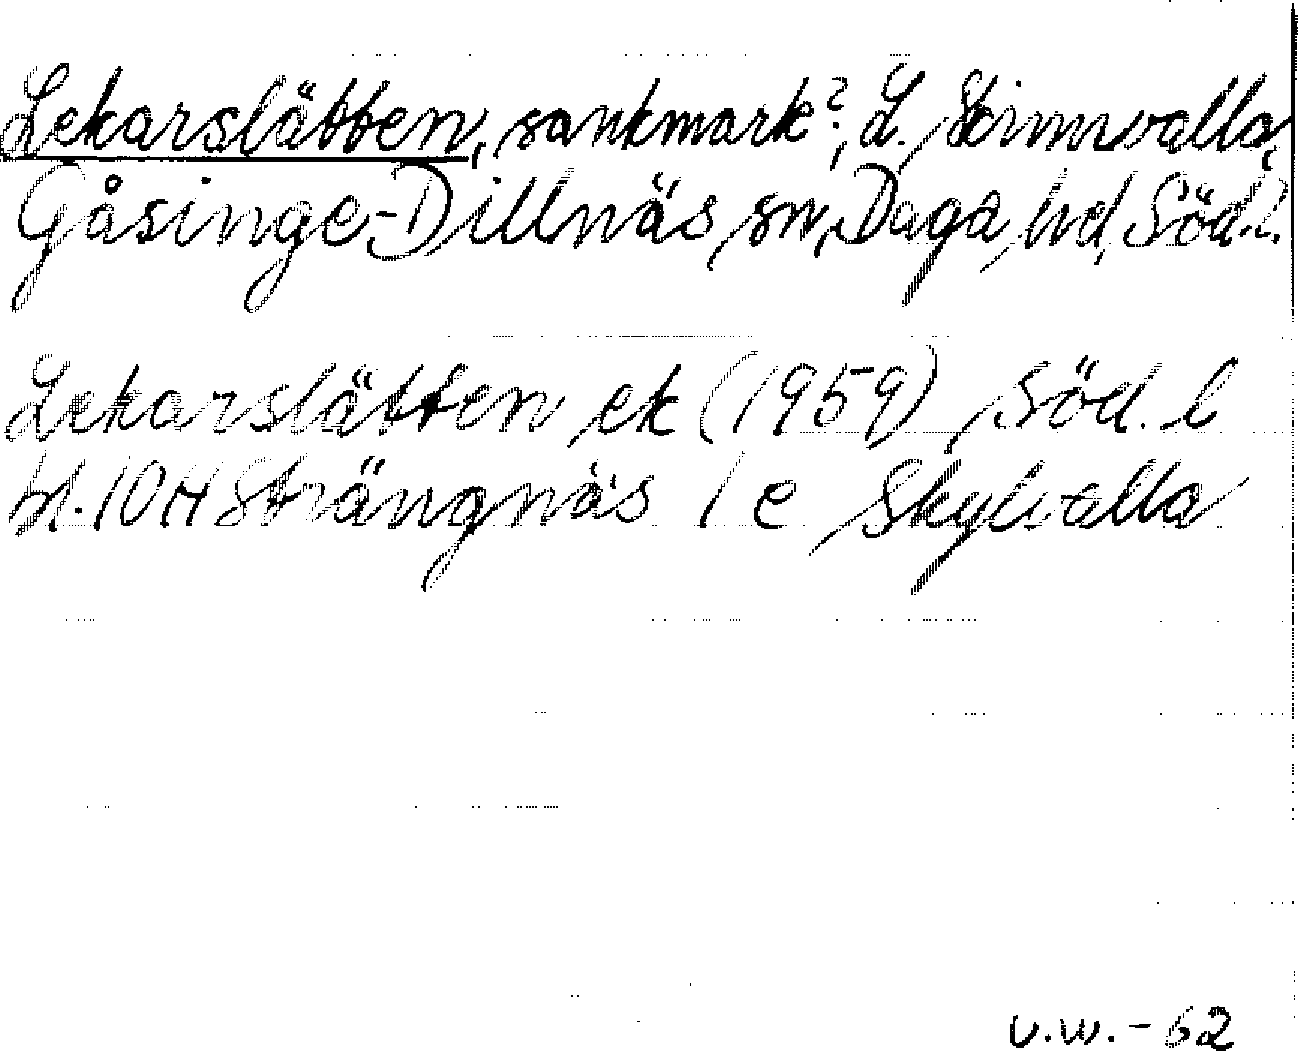 Lekarslätten, sankmark?, L. Stimmvalla,
Gåsinge-Dillnäs sn, Daga hd, Söd.l.
Lekarslätten ek (1959) Söd. l
bl. 10H Strängnäs 1 e Skylvalla
v.w. - 62